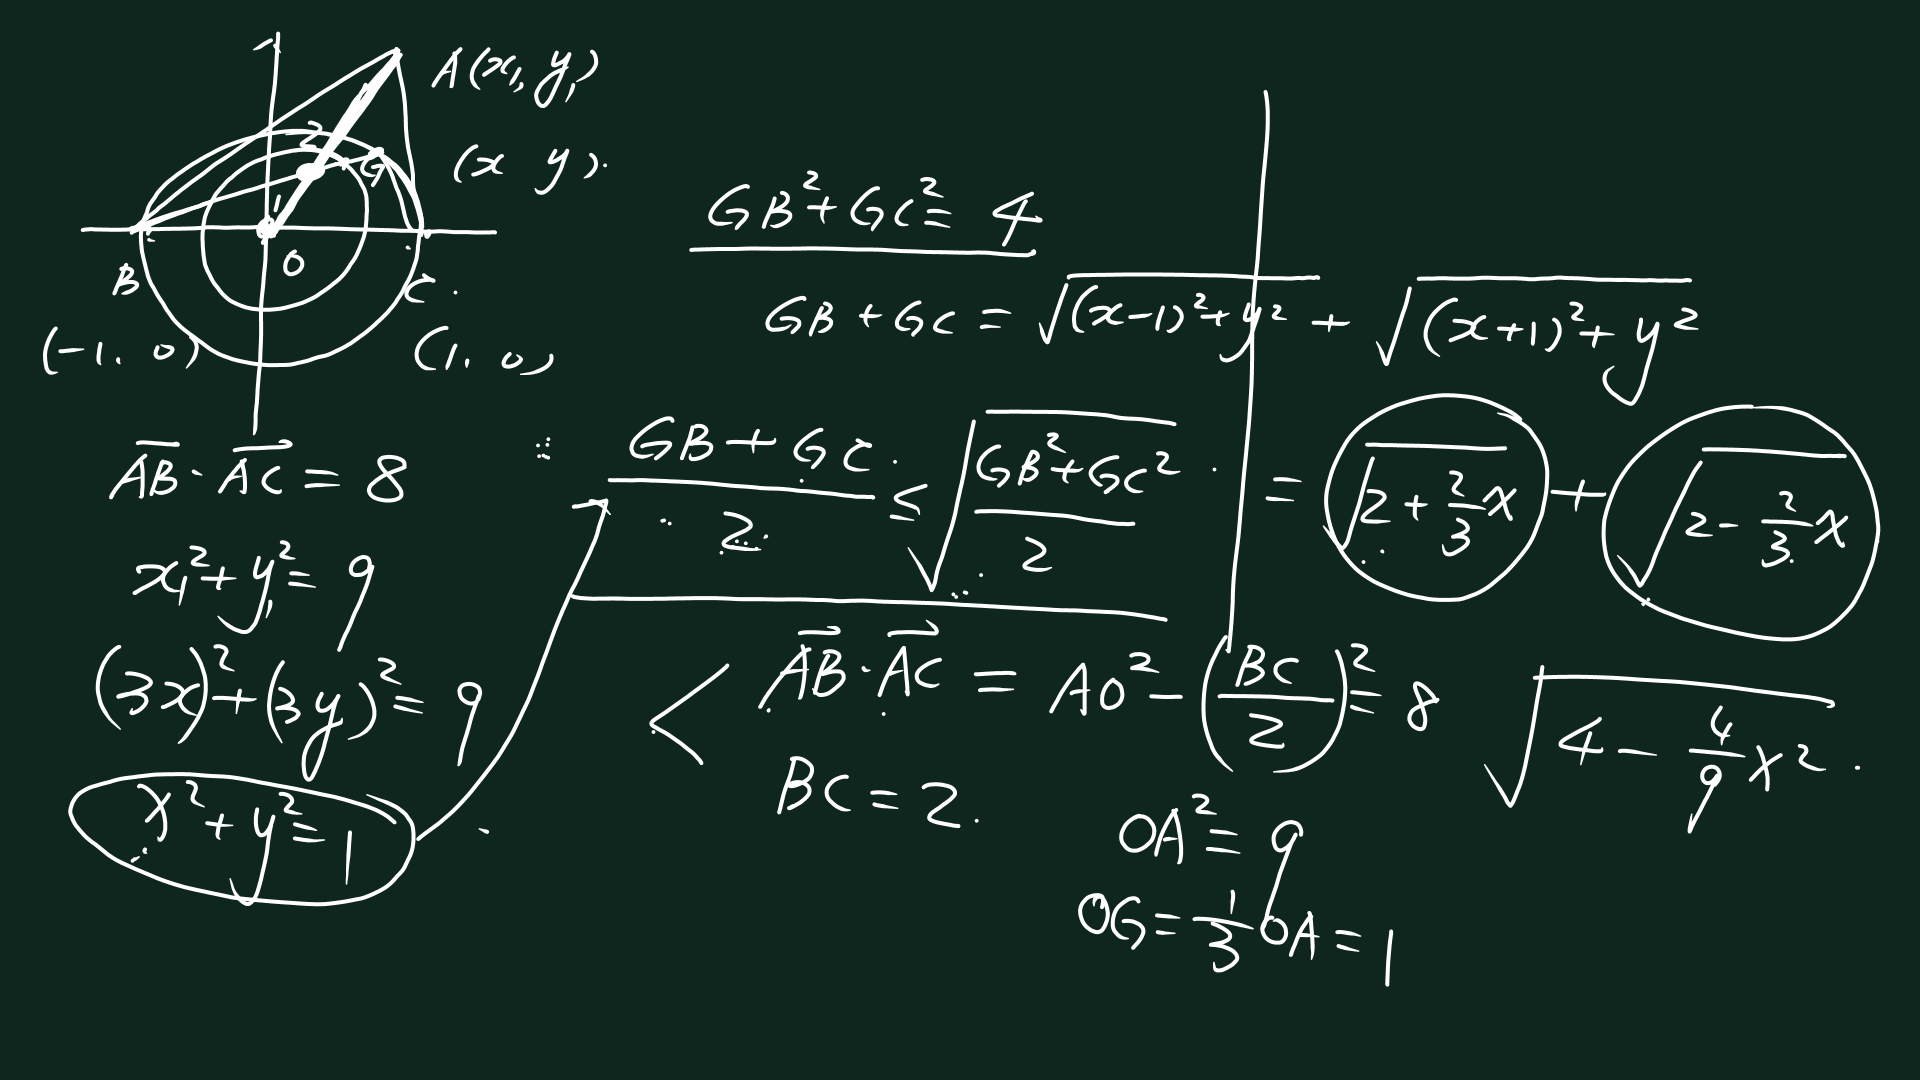 A(x₁, y₁)
(x y).
2
G
1
O
B
C.
(-1, 0)
(1, 0)
AB · AC = 8
x₁² + y₁² = 9
(3x)² + (3y)² = 9
x² + y² = 1
GB² + GC² = 4
GB + GC = √((x-1)² + y²) + √((x+1)² + y²)
(GB + GC)/2 ≤ √((GB² + GC²)/2)
= √(2 + 2/3 x) + √(2 - 2/3 x)
AB · AC = AO² - (BC/2)² = 8
BC = 2.
√(4 - 4/9 x²).
OA² = 9
OG = 1/3 OA = 1